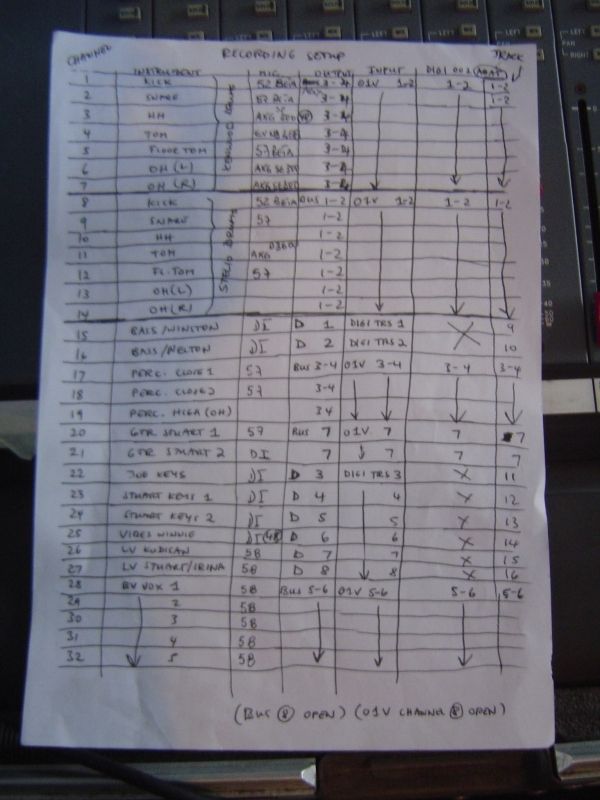 RECORDING SETUP
CHANNEL INSTRUMENT MIC OUTPUT INPUT DIGI 001 (ADAT) TRACK
1 KICK 52 BETA 3-4 01V 1-2 1-2 1-2
2 SNARE 57 BETA 3-4 1-2
3 HH AKG 3-4
4 TOM 3-4
5 FLOOR TOM 57 BETA 3-4
6 OH (L) AKG 3-4
7 OH (R) AKG 3-4
8 KICK 52 BETA BUS 1-2 01V 1-2 1-2 1-2
9 SNARE 57 1-2
10 HH 1-2
11 TOM AKG D360 1-2
12 FL. TOM 57 1-2
13 OH (L) 1-2
14 OH (R) 1-2
DRUMS
DRUMS
15 BASS/WINSTON DI D 1 DIGI TRS 1 X 9
16 BASS/NELTON DI D 2 DIGI TRS 2 10
17 PERC. CLOSE 1 57 BUS 3-4 01V 3-4 3-4 3-4
18 PERC. CLOSE 2 57 3-4
19 PERC. HIGH (OH) 34
20 GTR STUART 1 57 BUS 7 01V 7 7 7
21 GTR STUART 2 DI 7 7 7 7
22 JUD KEYS DI D 3 DIGI TRS 3 X 11
23 STUART KEYS 1 DI D 4 4 X 12
24 STUART KEYS 2 DI D 5 5 X 13
25 VIBES WINNIE DI (48) D 6 6 X 14
26 LV 58 D 7 7 X 15
27 LV STUART/IRINA 58 D 8 8 X 16
28 BV VOX 1 58 BUS 5-6 01V 5-6 5-6 5-6
29 2 58
30 3 58
31 4 58
32 5 58
(BUS 8 OPEN) (01V CHANNEL 8 OPEN)